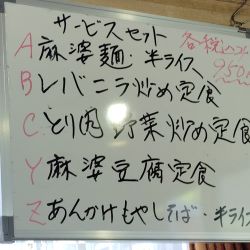 サービスセット
各税込
950
A 麻婆麺・半ライス
B レバニラ炒め定食
C とり肉野菜炒め定食
Y 麻婆豆腐定食
Z あんかけもやしそば・半ライ